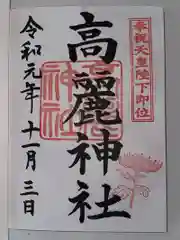 奉祝天皇陛下即位
高麗神社
令和元年十一月三日